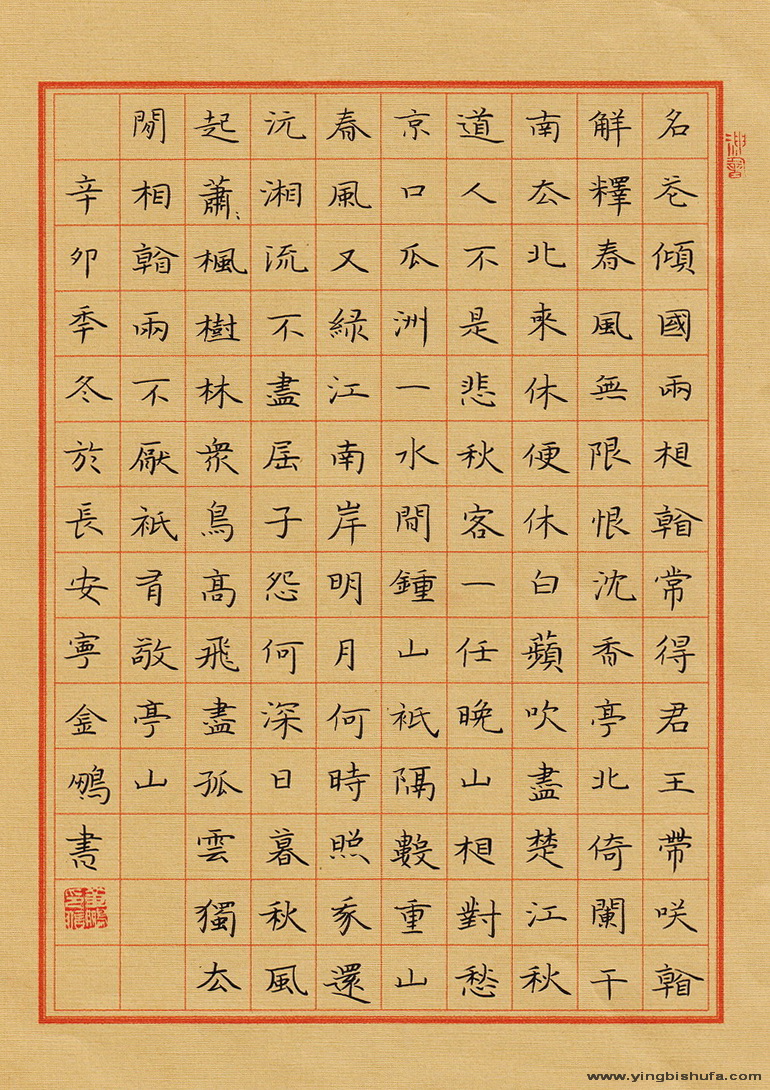 名花傾國兩相看常得君王帶咲看
解釋春風無限恨沈香亭北倚闌干
南去北來休便休白蘋吹盡楚江秋
道人不是悲秋客一任晚山相對愁
京口瓜洲一水間鍾山衹隔數重山
春風又綠江南岸明月何時照我還
沅湘流不盡屈子怨何深日暮秋風
起蕭〻楓樹林衆鳥高飛盡孤雲獨去
閒相看兩不厭衹有敬亭山
辛卯季冬於長安寧金鵬書
www.yingbishufa.com